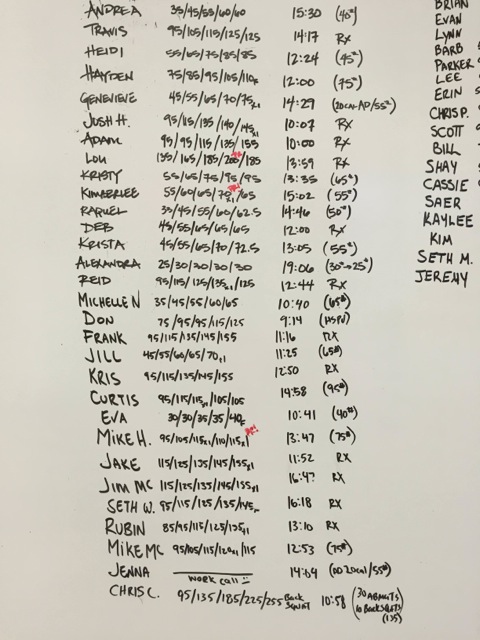 ANDREA 35/45/55/60/60 15:30 (40#)
TRAVIS 95/105/115/125/125 14:17 RX
HEIDI 55/65/75/85/85 12:24 (45#)
HAYDEN 75/85/95/105/110 12:00 (75#)
GENEVIEVE 45/55/65/70/75x1 14:29 (20CAL AP/55#)
JOSH H. 95/115/135/140/145x1 10:07 RX
ADAM 95/95/115/135/155 10:00 RX
LOU 135/165/185/200/185 13:59 RX
KRISTY 55/65/75/95/95 13:35 (65#)
KIMBERLEE 55/60/65/70x1/65 15:02 (55#)
RAQUEL 35/45/55/60/62.5 14:46 (50#)
DEB 45/55/65/65/65 12:00 RX
KRISTA 45/55/65/70/72.5 13:05 (55#)
ALEXANDRA 25/30/30/30/30 19:06 (30#→25#)
REID 95/115/125/135x1/125 12:44 RX
MICHELLE N 35/45/55/60/65 10:40 (65#)
DON 75/95/95/115/125 9:14 (HSPU)
FRANK 95/115/135/145/155 11:16 RX
JILL 45/55/60/65/70x1 11:25 (65#)
KRIS 95/115/135/145/155 12:50 RX
CURTIS 95/115/115x1/105/105 14:58 (95#)
EVA 30/30/35/35/40 10:41 (40#)
MIKE H. 95/105/115x1/110/115x1 13:47 (75#)
JAKE 115/125/135/145/155x1 11:52 RX
JIM MC 115/125/135/145/155x1 16:47 RX
SETH W. 95/115/125/135/145 16:18 RX
RUBIN 85/95/115/125/135x1 13:10 RX
MIKE MC 95/105/115/120x1/115 12:53 (75#)
JENNA WORK CALL :: 14:04
CHRIS C. 95/135/185/225/255 BACK SQUAT 10:58 (30 ABMATS
(135)
BRIAN
EVAN
LYNN
BARB
PARKER
LEE
ERIN
CHRIS P.
SCOTT
BILL
SHAY
CASSIE
SAER
KAYLEE
KIM
SETH M.
JEREMY